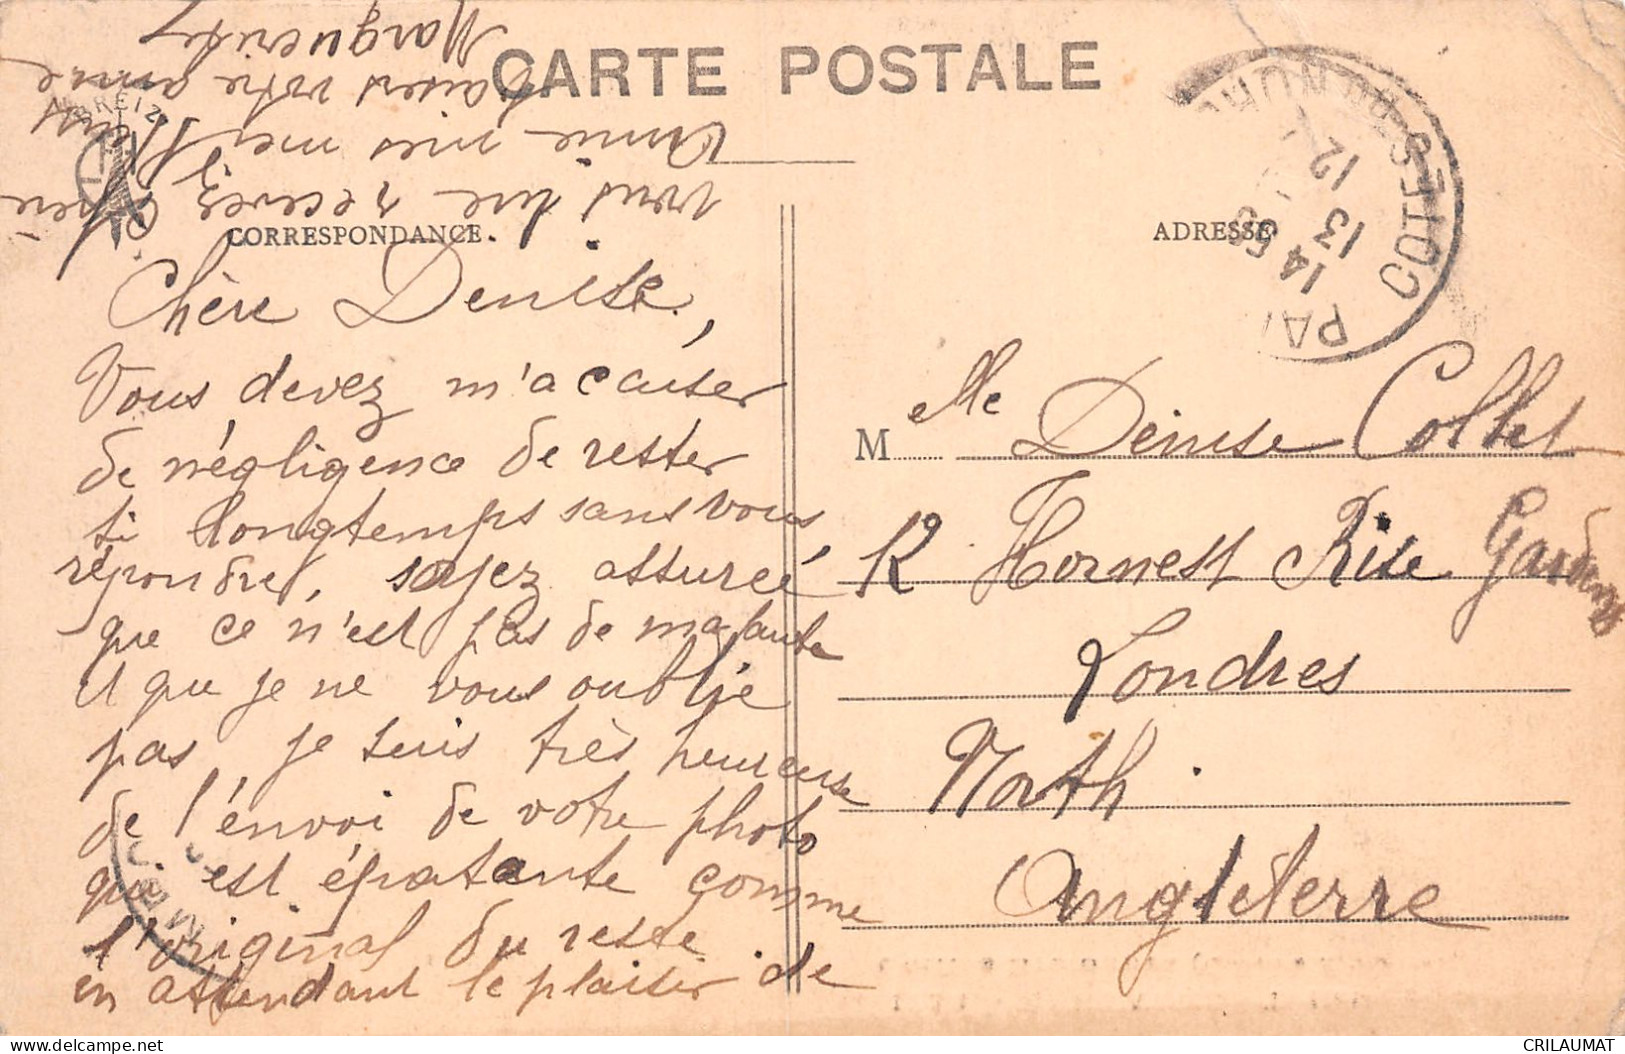 CARTE POSTALE
CORRESPONDANCE
ADRESSE
Chère Denise,
Vous devez m'accuser
de négligence de rester
si longtemps sans vous
répondre, soyez assurée
que ce n'est pas de ma faute
et que je ne vous oublie
pas je suis très heureuse
de l'envoi de votre photo
qui est épatante comme
l'original du reste
en attendant le plaisir de
vous lire recevez Chère
Amie mes meilleurs
baisers votre amie
Marguerite
M elle Denise Collet
12 Hornest Rise Gardens
Londres
North
Angleterre
14 55
13
12
COTES DU NORD
ABREIZ
CRILAUMAT